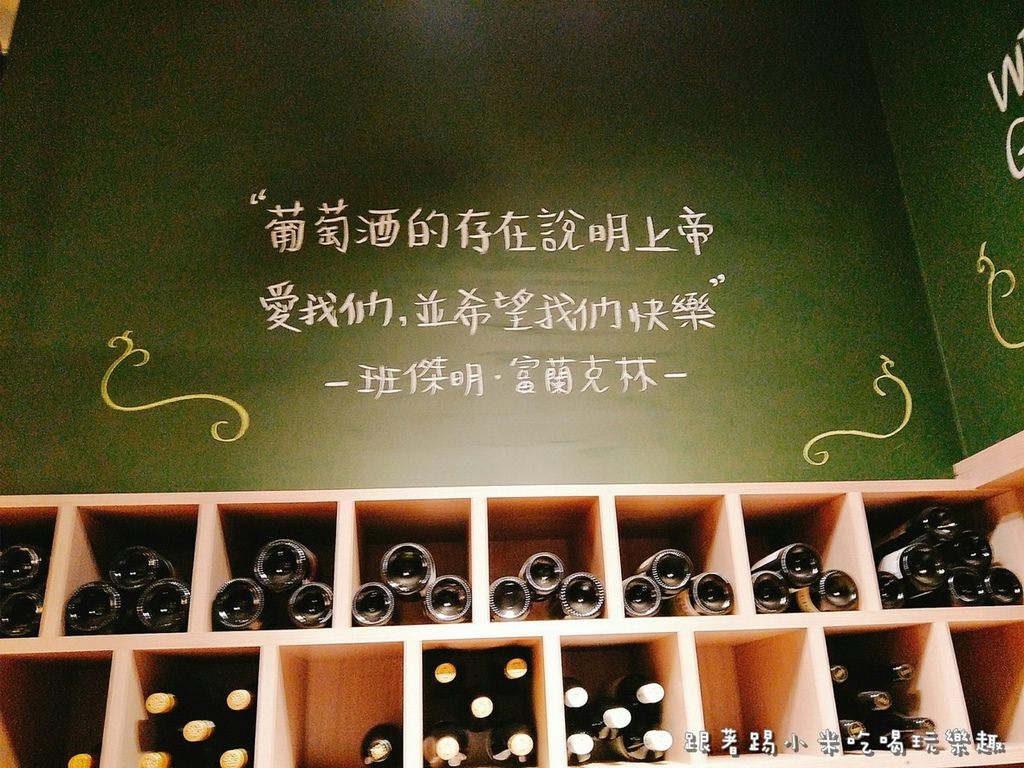 “葡萄酒的存在說明上帝
愛我們，並希望我們快樂”
－班傑明·富蘭克林－
跟著踢小米吃喝玩樂趣